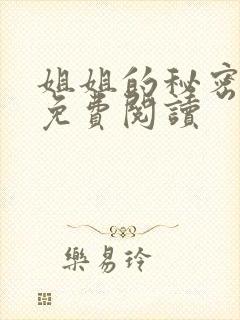 姐姐的秘密
免費閱讀
樂易玲